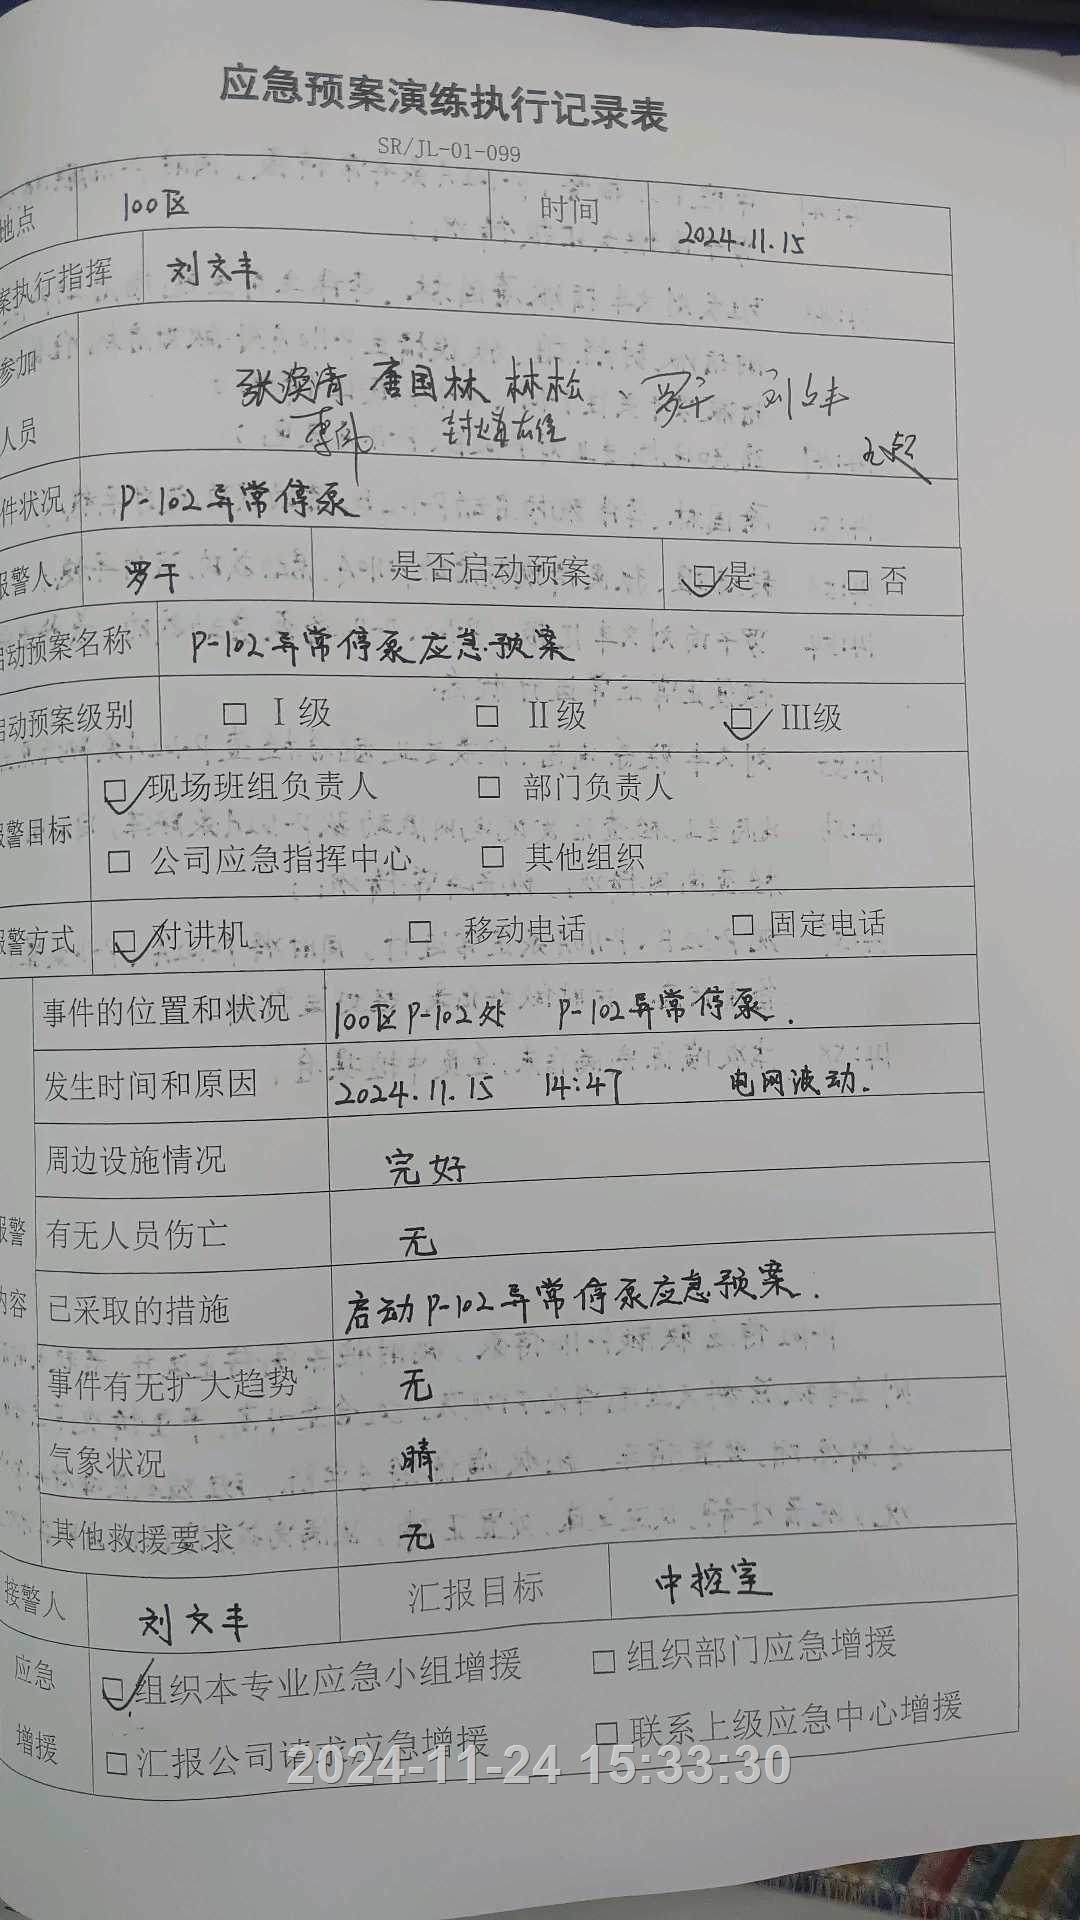 应急预案演练执行记录表
SR/JL-01-099
地点 100区 时间 2024.11.15
案执行指挥 刘文丰
参加人员 张涣清 唐国林 林松 、罗干 刘文丰
李风
件状况 P-102异常停泵
报警人 罗干 是否启动预案 ☑是 □否
启动预案名称 P-102异常停泵应急预案
启动预案级别 □ Ⅰ级 □ Ⅱ级 ☑ Ⅲ级
报警目标 ☑现场班组负责人 □ 部门负责人
□ 公司应急指挥中心 □ 其他组织
报警方式 ☑对讲机 □ 移动电话 □ 固定电话
报警内容
事件的位置和状况 100区P-102处 P-102异常停泵.
发生时间和原因 2024.11.15 14:47 电网波动.
周边设施情况 完好
有无人员伤亡 无
已采取的措施 启动P-102异常停泵应急预案.
事件有无扩大趋势 无
气象状况 晴
其他救援要求 无
接警人 刘文丰 汇报目标 中控室
应急增援 ☑组织本专业应急小组增援 □组织部门应急增援
□汇报公司请求应急增援 □联系上级应急中心增援
2024-11-24 15:33:30